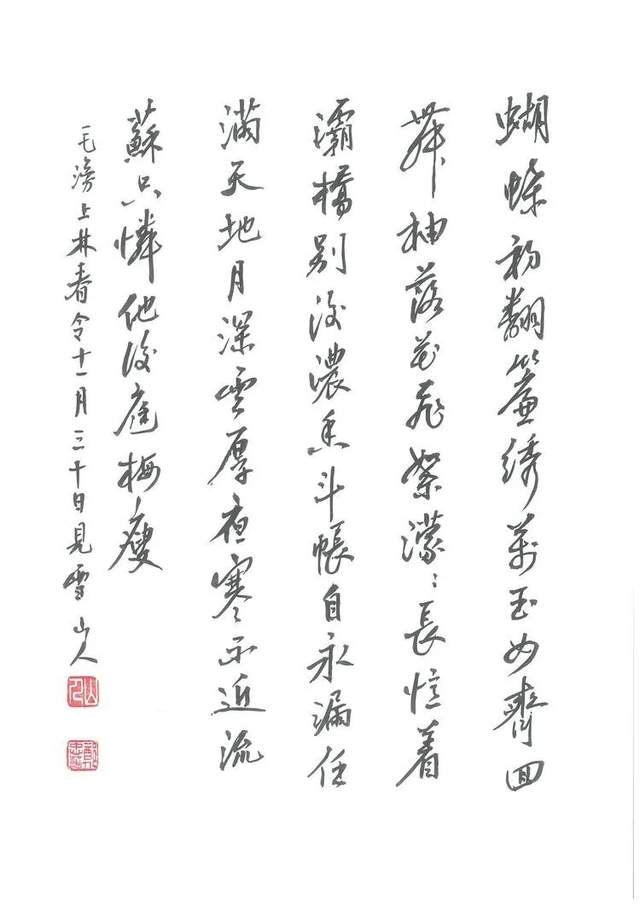 蝴蝶初翻簾綉萬玉女齊回
舞袖落花飛絮濛:長憶着
灞橋別後濃香斗帳自永漏任
滿天地月深雲厚夜寒不近流
蘇只憐他後庭梅瘦
毛滂上林春令十一月三十日見雪山人
山人